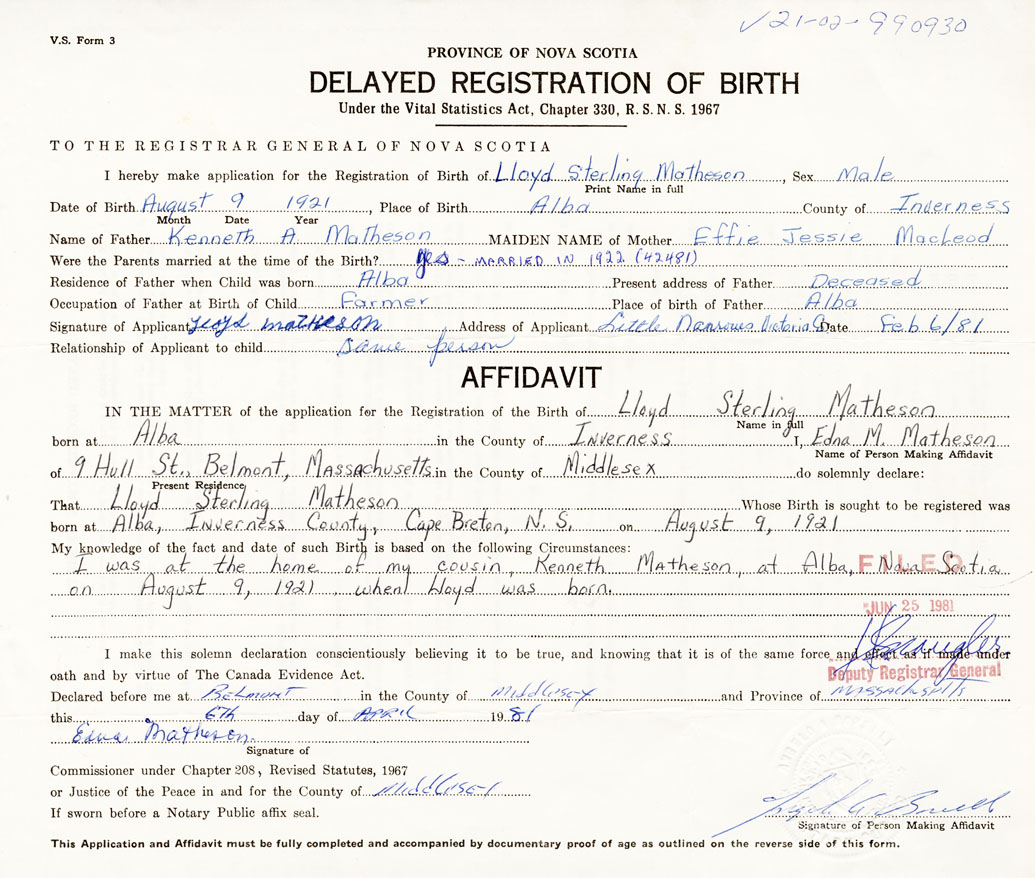 V21-02-990930
V.S. Form 3
PROVINCE OF NOVA SCOTIA
DELAYED REGISTRATION OF BIRTH
Under the Vital Statistics Act, Chapter 330, R. S. N. S. 1967
TO THE REGISTRAR GENERAL OF NOVA SCOTIA
I hereby make application for the Registration of Birth of Lloyd Sterling Matheson, Sex Male
Print Name in full
Date of Birth August 9 1921, Place of Birth Alba County of Inverness
Month Date Year
Name of Father Kenneth A. Matheson MAIDEN NAME of Mother Effie Jessie MacLeod
Were the Parents married at the time of the Birth? yes - MARRIED IN 1922 (42481)
Residence of Father when Child was born Alba Present address of Father Deceased
Occupation of Father at Birth of Child Farmer Place of birth of Father Alba
Signature of Applicant Lloyd Matheson Address of Applicant Little Narrows Victoria Co Date Feb. 6/81
Relationship of Applicant to child Same person
AFFIDAVIT
IN THE MATTER of the application for the Registration of the Birth of Lloyd Sterling Matheson
Name in full
born at Alba in the County of Inverness I, Edna M. Matheson
Name of Person Making Affidavit
of 9 Hull St., Belmont, Massachusetts in the County of Middlesex do solemnly declare:
Present Residence
That Lloyd Sterling Matheson Whose Birth is sought to be registered was
born at Alba, Inverness County, Cape Breton, N. S. on August 9, 1921
My knowledge of the fact and date of such Birth is based on the following Circumstances:
I was at the home of my cousin, Kenneth Matheson, at Alba, Nova Scotia
FILED
on August 9, 1921, when Lloyd was born.
JUN 25 1981
I make this solemn declaration conscientiously believing it to be true, and knowing that it is of the same force and effect as if made under
oath and by virtue of The Canada Evidence Act.
Deputy Registrar General
Declared before me at BELMONT in the County of Middlesex and Province of MASSACHUSETTS
this 6th day of APRIL 1981
Edna Matheson
Signature of
Commissioner under Chapter 208, Revised Statutes, 1967
or Justice of the Peace in and for the County of Middlesex
If sworn before a Notary Public affix seal.
Signature of Person Making Affidavit
This Application and Affidavit must be fully completed and accompanied by documentary proof of age as outlined on the reverse side of this form.